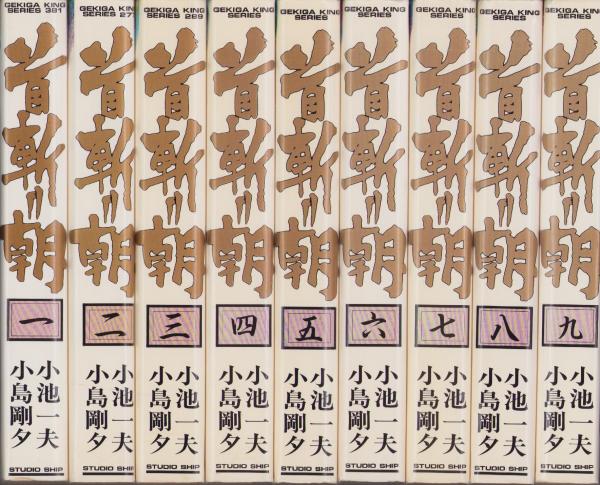 GEKIGA KING
SERIES 381
首斬り朝
一
小池一夫
小島剛夕
STUDIO SHIP
GEKIGA KING
SERIES 27
首斬り朝
二
小池一夫
小島剛夕
STUDIO SHIP
GEKIGA KING
SERIES 289
首斬り朝
三
小池一夫
小島剛夕
STUDIO SHIP
GEKIGA KING
SERIES
首斬り朝
四
小池一夫
小島剛夕
STUDIO SHIP
GEKIGA KING
SERIES
首斬り朝
五
小池一夫
小島剛夕
STUDIO SHIP
GEKIGA KING
SERIES
首斬り朝
六
小池一夫
小島剛夕
STUDIO SHIP
GEKIGA KING
SERIES
首斬り朝
七
小池一夫
小島剛夕
STUDIO SHIP
GEKIGA KING
SERIES
首斬り朝
八
小池一夫
小島剛夕
STUDIO SHIP
GEKIGA KING
SERIES
首斬り朝
九
小池一夫
小島剛夕
STUDIO SHIP